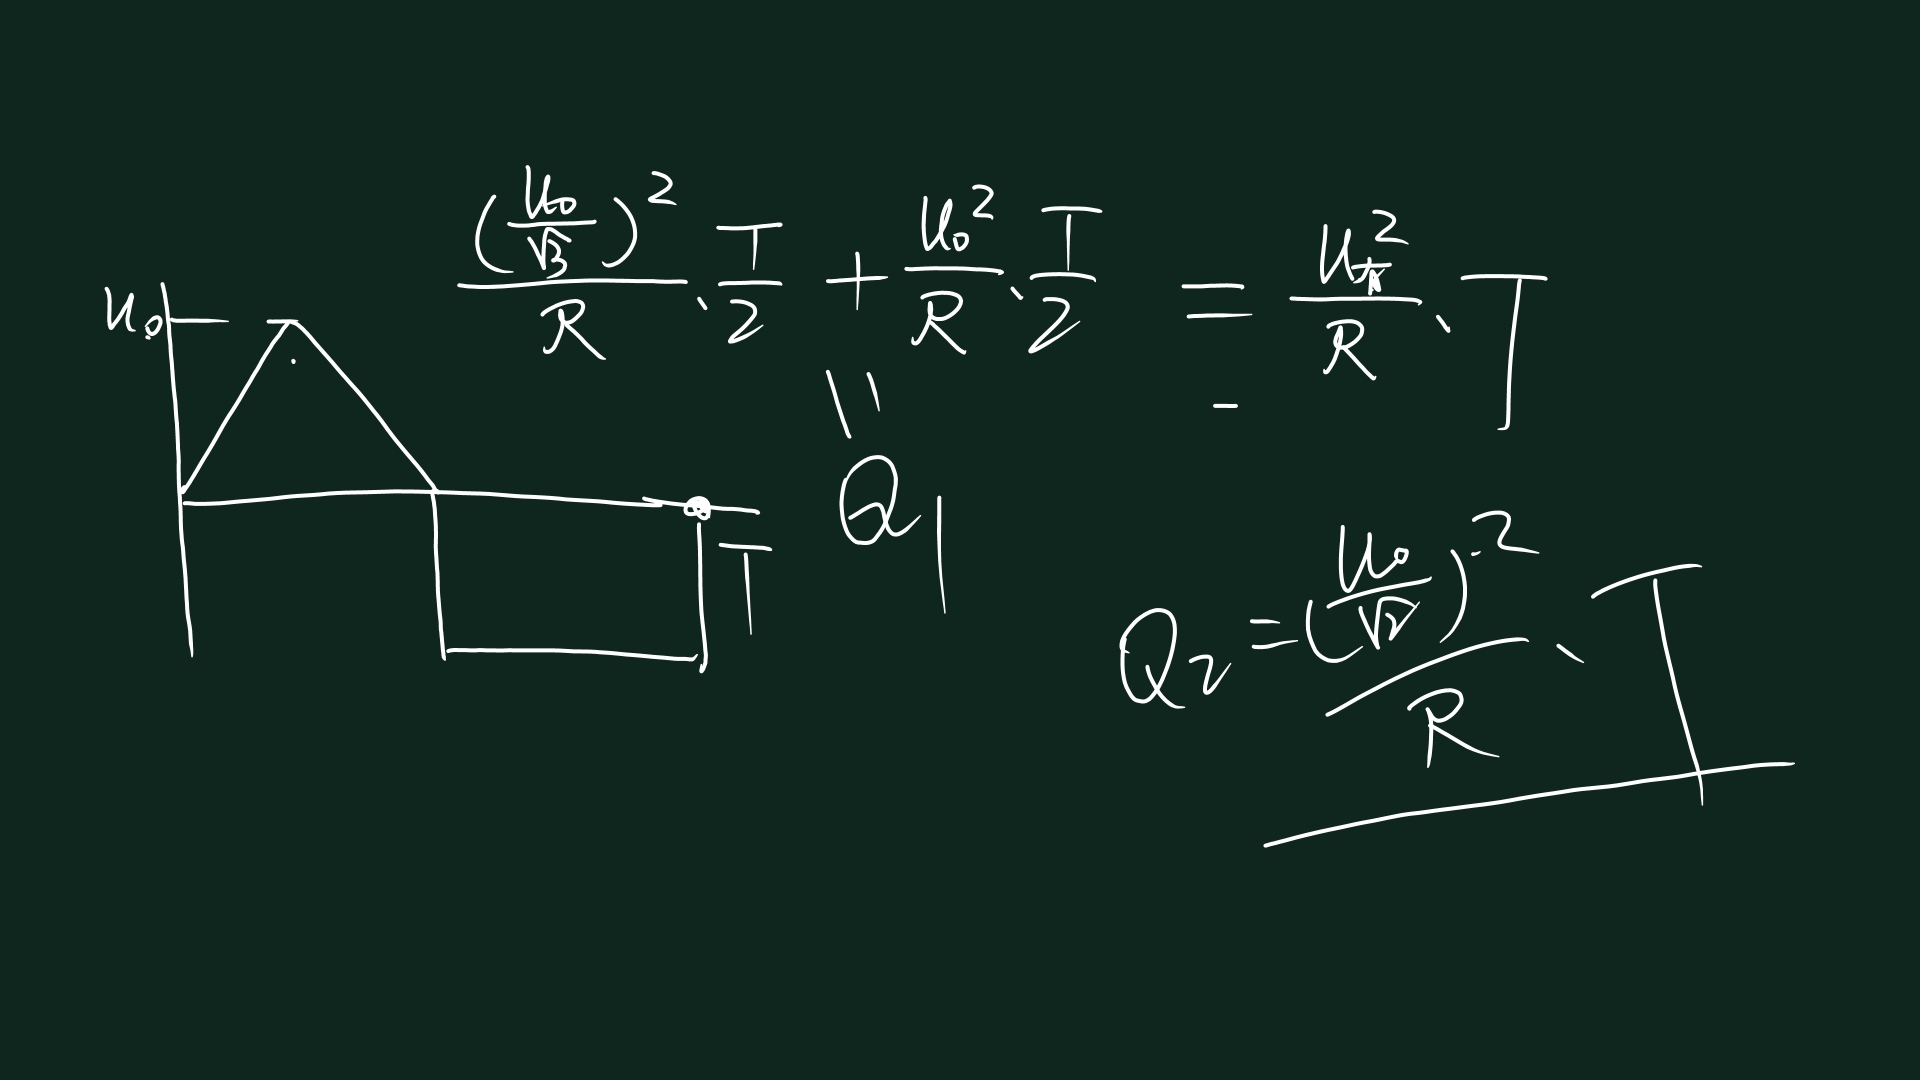 (u₀/√3)²/R · T/2 + u₀²/R · T/2 = u有²/R · T
u₀
=
Q₁
T
Q₂ = (u₀/√2)²/R · T